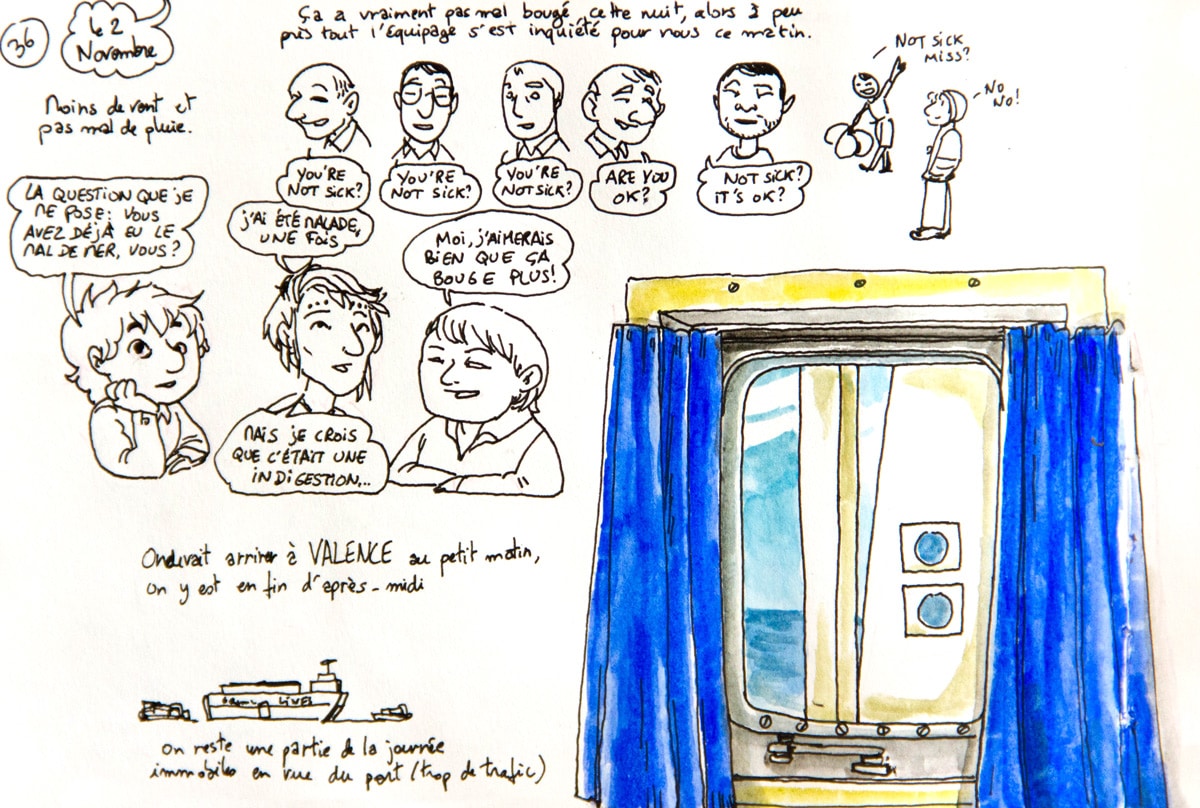 36
le 2
Novembre
Ça a vraiment pas mal bougé cette nuit, alors à peu
près tout l'équipage s'est inquiété pour nous ce matin.
Moins de vent et
pas mal de pluie.
YOU'RE
NOT SICK?
YOU'RE
NOT SICK?
YOU'RE
NOT SICK?
ARE YOU
OK?
NOT SICK?
IT'S OK?
NOT SICK
MISS?
NO
NO!
LA QUESTION QUE JE
ME POSE: VOUS
AVEZ DÉJÀ EU LE
MAL DE MER, VOUS?
J'AI ÉTÉ MALADE,
UNE FOIS
MAIS JE CROIS
QUE C'ÉTAIT UNE
INDIGESTION...
MOI, J'AIMERAIS
BIEN QUE ÇA
BOUGE PLUS!
On devait arriver à VALENCE au petit matin,
on y est en fin d'après-midi
LINES
on reste une partie de la journée
immobiles en vue du port (trop de trafic)